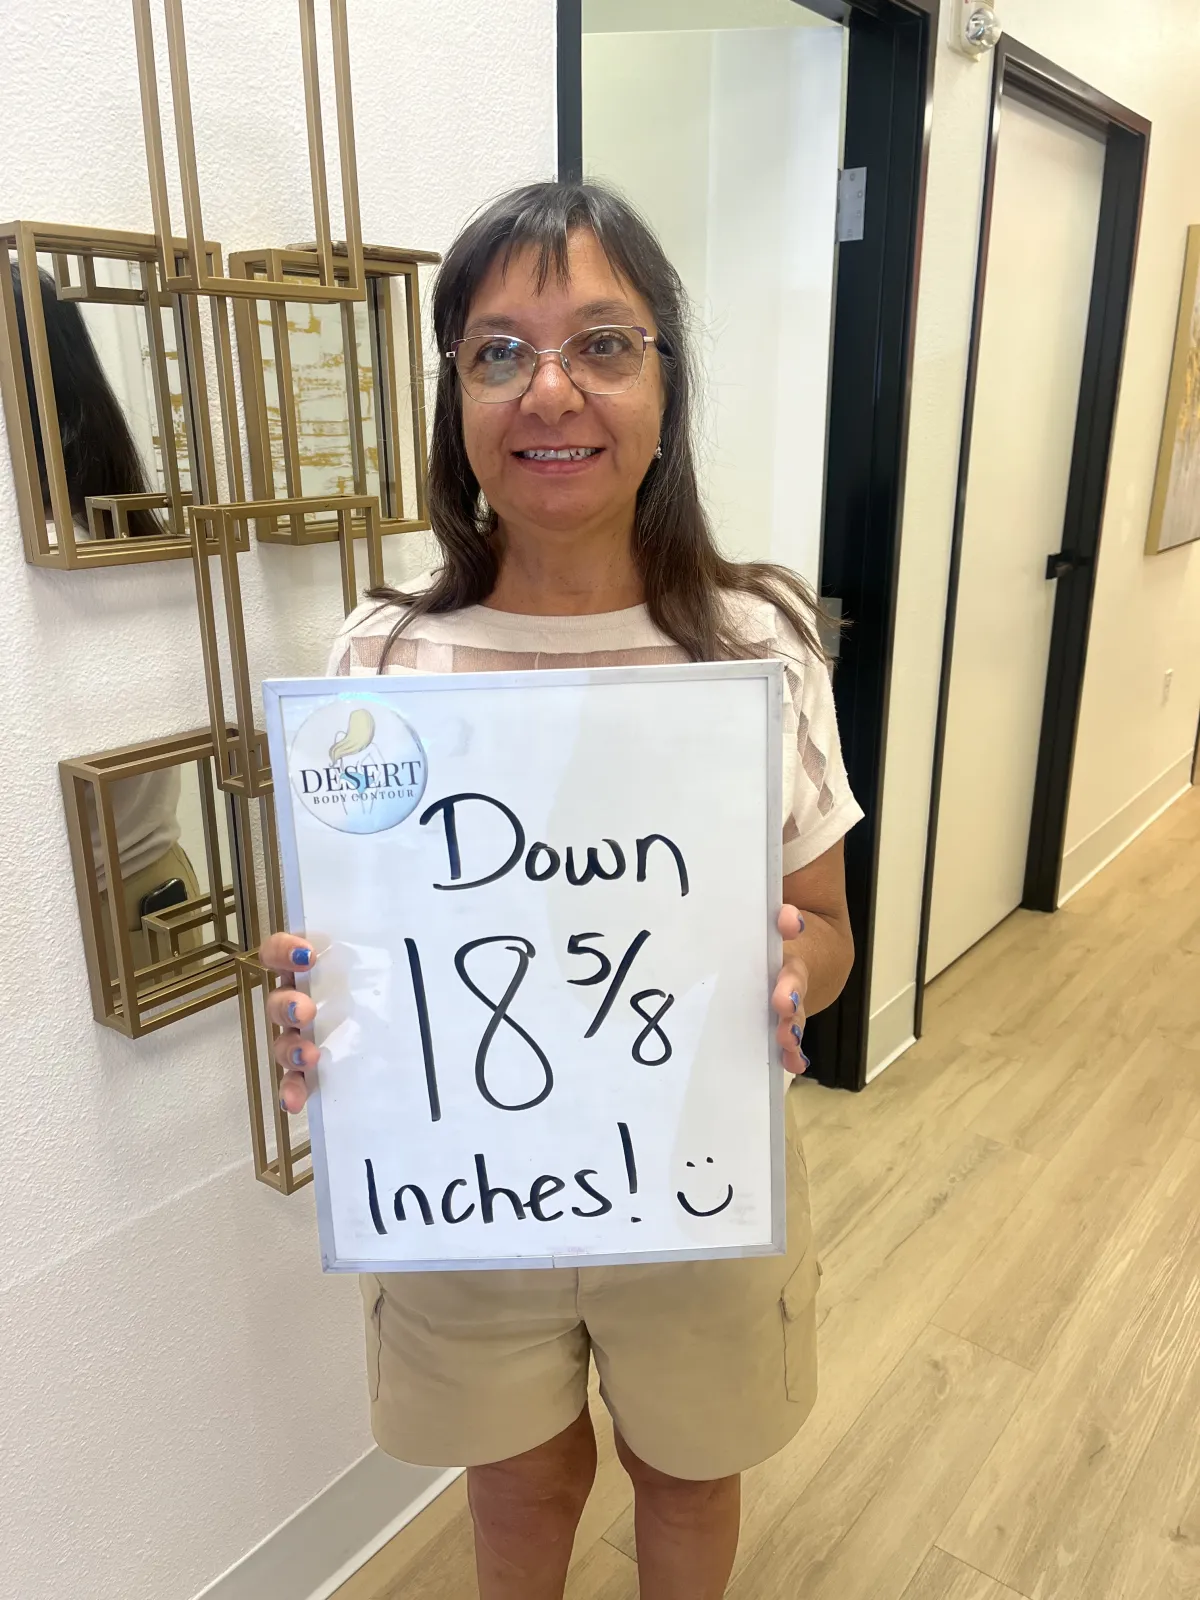 DESERT
BODY CONTOUR
Down
18 5/8
Inches!